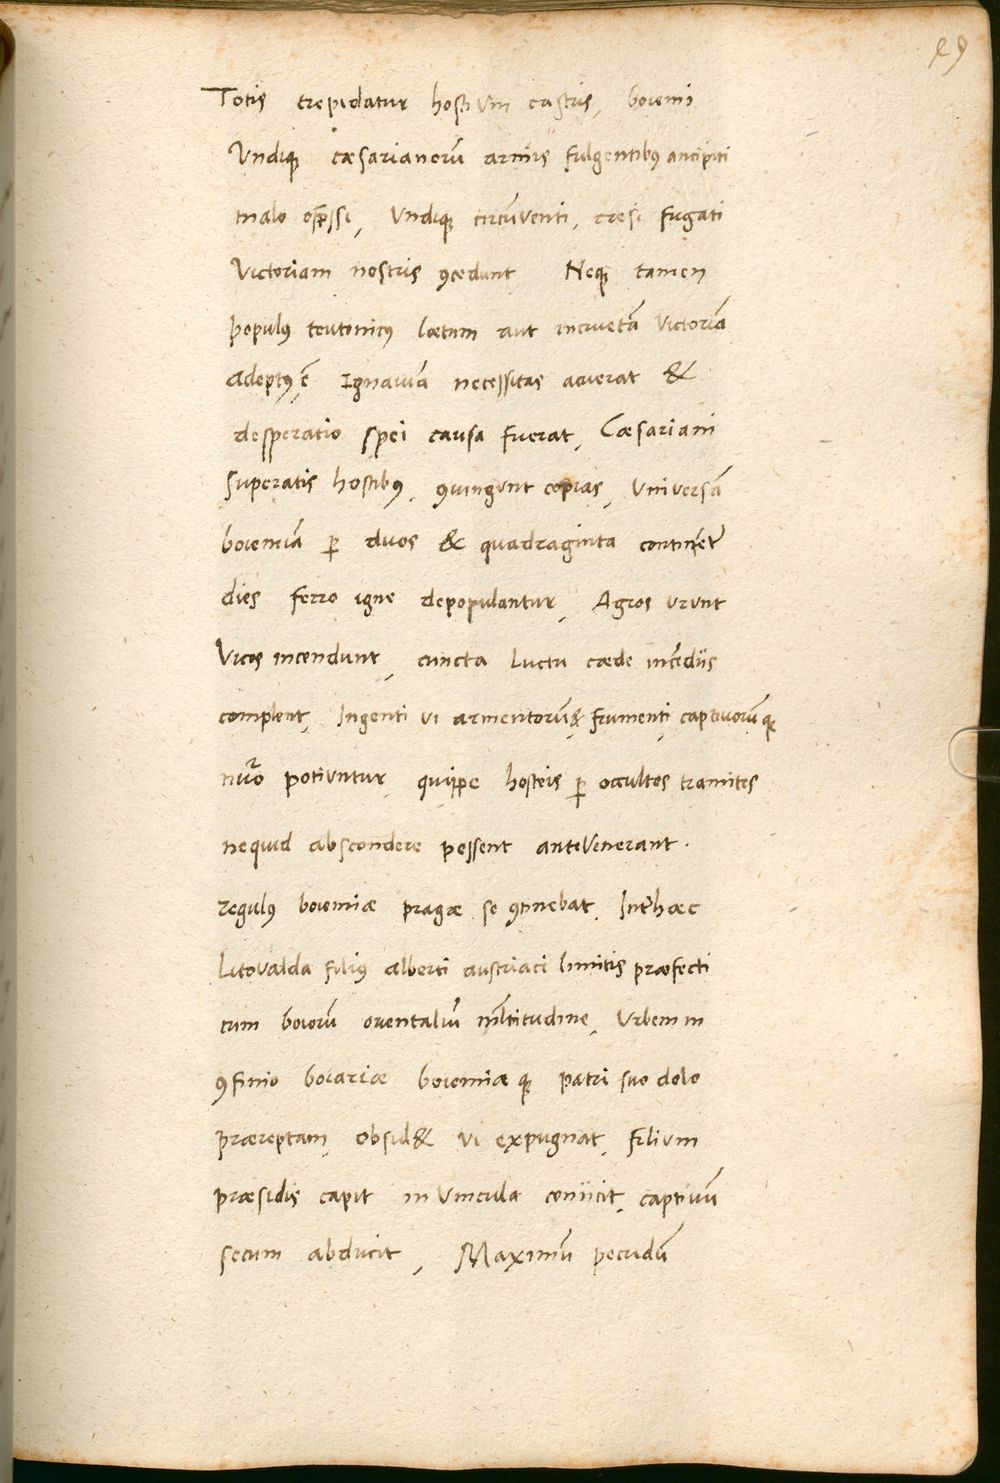 29
Totis trepidatur hostium castris, boiemi
Undiqꝫ cæsarianorū armis fulgentibꝰ ancipiti
malo opp̄ssi, Undiqꝫ circūventi, cæsi fugati
Victoriam nostris ꝯcedunt Neqꝫ tamen
populꝰ teutonicꝰ lætam aut incruetā Victoriā
Adeptꝰ ē, Ignaviā necessitas acuerat &
desperatio spei causa fuerat, Cæsariani
superatis hostibꝰ, ꝯiungunt copias, Universā
boiemiā ꝑ duos & quadraginta continēter
dies ferro igne depopulantur, Agros urunt
Vicos incendunt, cuncta Luctu cæde incēdiis
complent, Ingenti vi armentorū, & frumenti, captivorumqꝫ
potiuntur, quippe hosteis ꝑ occultos tramites
nequid abscondere possent antevenerant.
regulꝰ boiemiæ pragæ se ꝯtinebat, Interhæc
Litovalda filiꝰ alberti austriaci limitis præfecti
cum boiorū orientaliū mltitudine, Urbem in
ꝯfinio boiariæ boiemiæ qꝫ patri suo dolo
præreptam, obsid& vi expugnat, filium
præsidis capit in vincula coniicit, captivū
secum abducit, Maximū pecudū